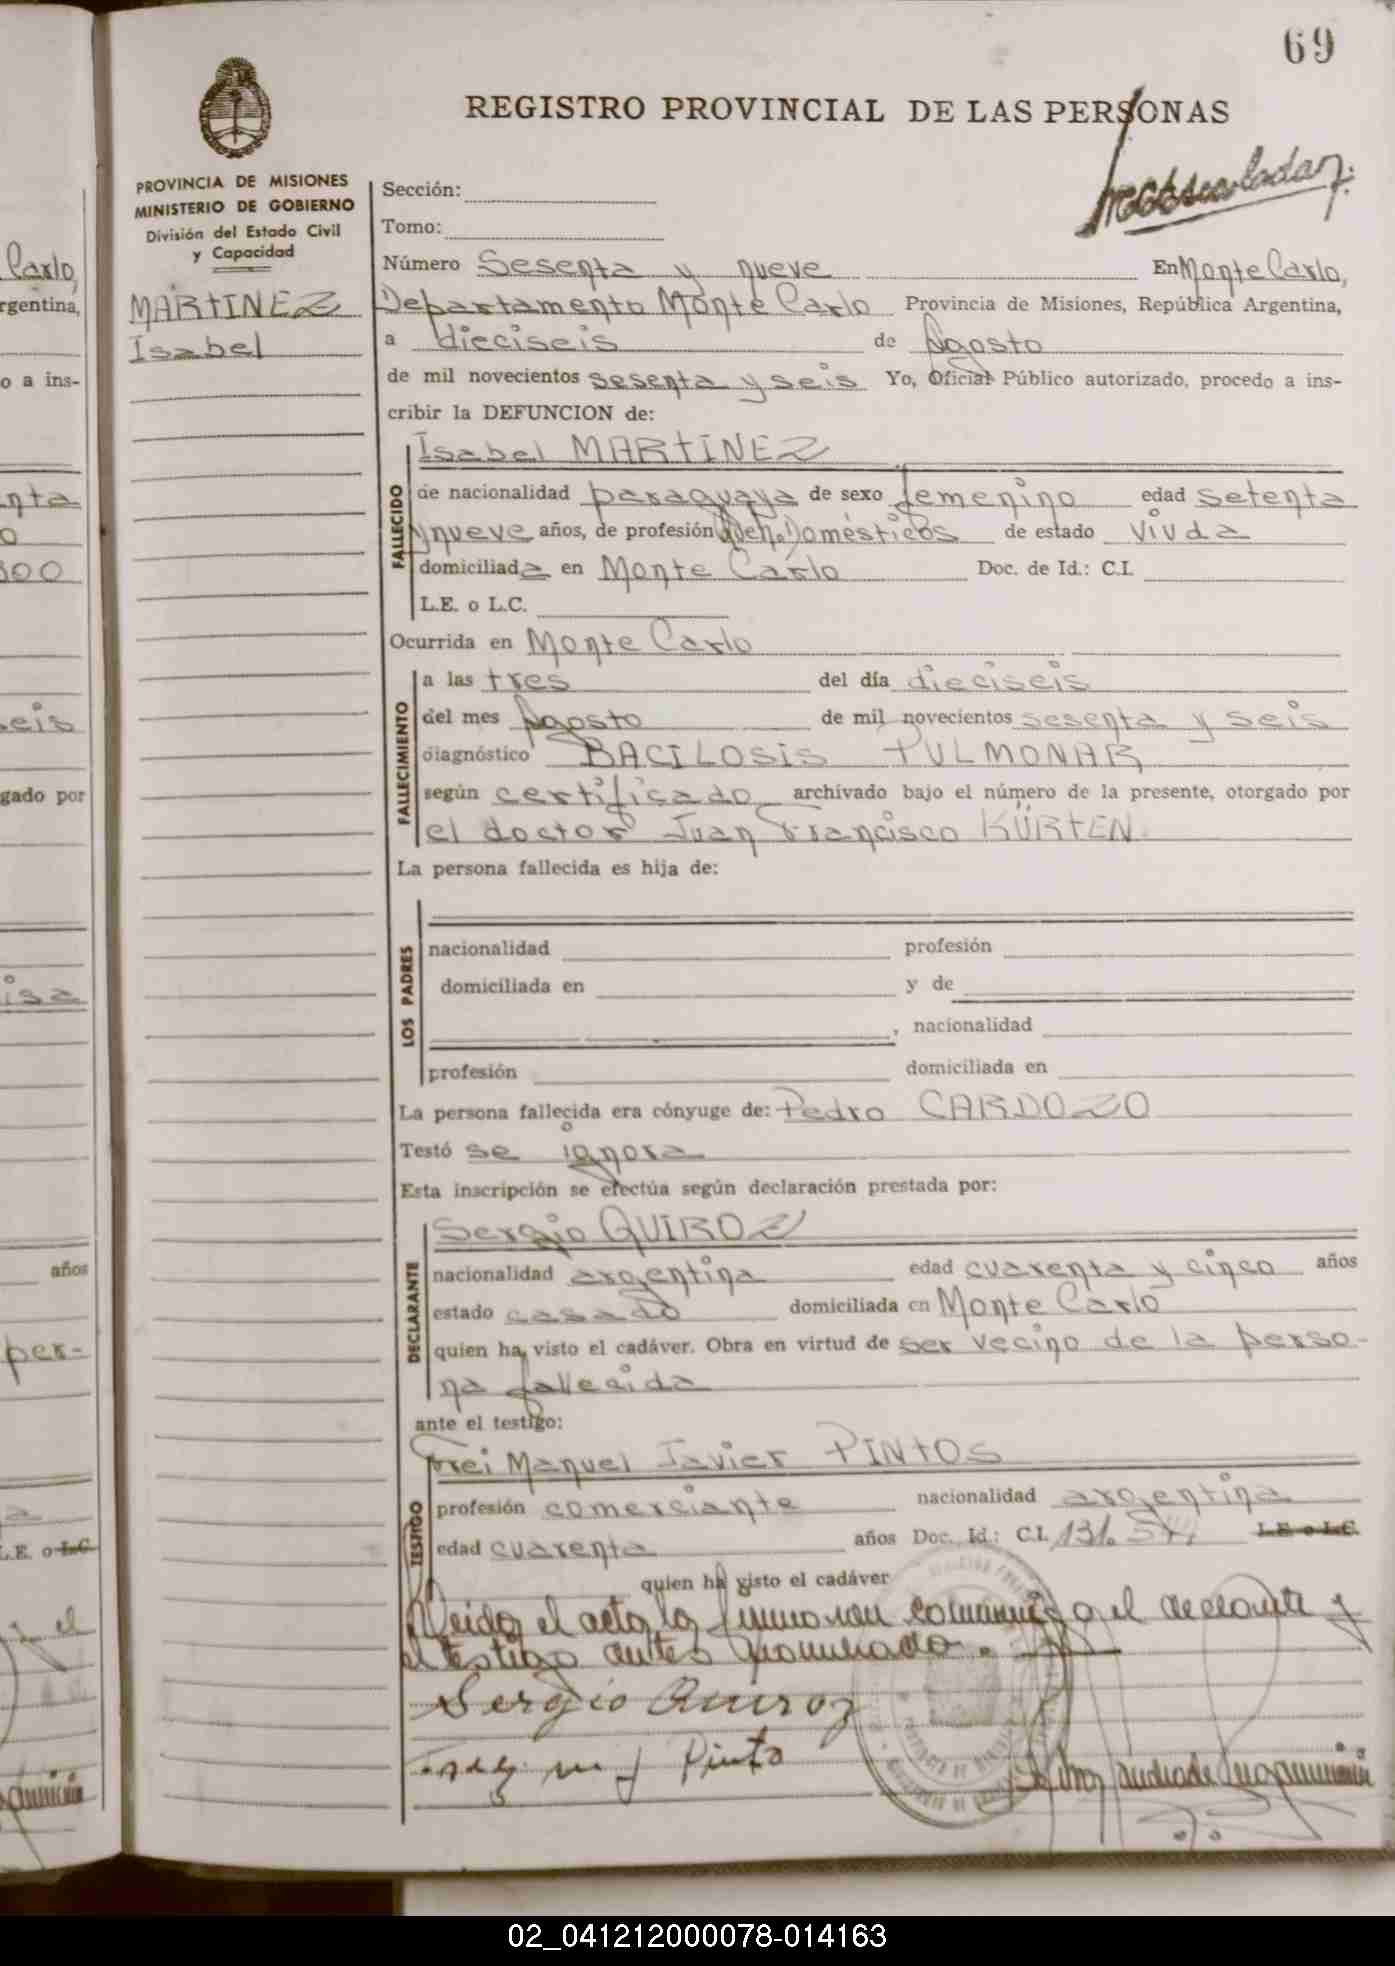 69
REGISTRO PROVINCIAL DE LAS PERSONAS
PROVINCIA DE MISIONES
MINISTERIO DE GOBIERNO
División del Estado Civil
y Capacidad
MARTINEZ
Isabel
Sección:
Tomo:
Número Sesenta y nueve En Monte Carlo,
Departamento Monte Carlo Provincia de Misiones, República Argentina,
a dieciseis de Agosto
de mil novecientos sesenta y seis Yo, Oficial Público autorizado, procedo a ins-
cribir la DEFUNCION de:
Isabel MARTINEZ
FALLECIDO
de nacionalidad paraguaya de sexo femenino edad setenta
y nueve años, de profesión Domésticos de estado viuda
domiciliada en Monte Carlo Doc. de Id.: C.I.
L.E. o L.C.
Ocurrida en Monte Carlo
FALLECIMIENTO
a las tres del día dieciseis
del mes Agosto de mil novecientos sesenta y seis
diagnóstico BACILOSIS PULMONAR
según certificado archivado bajo el número de la presente, otorgado por
el doctor Juan Francisco KÜRTEN
La persona fallecida es hija de:
LOS PADRES
nacionalidad profesión
domiciliada en y de
, nacionalidad
profesión domiciliada en
La persona fallecida era cónyuge de: Pedro CARDOZO
Testó se ignora
Esta inscripción se efectúa según declaración prestada por:
Sergio QUIROZ
DECLARANTE
nacionalidad argentina edad cuarenta y cinco años
estado casado domiciliada en Monte Carlo
quien ha visto el cadáver. Obra en virtud de ser vecino de la perso-
na fallecida
ante el testigo:
Frei Manuel Javier PINTOS
TESTIGO
profesión comerciante nacionalidad argentina
edad cuarenta años Doc. Id.: C.I. 131. L.E. o L.C.
quien ha visto el cadáver
Leida el acta la firmaron conmigo el declarante y
el testigo antes
Sergio Quiroz
Pinto
Carlo,
rgentina,
o a ins-
nta
o
300
seis
gado por
isa
años
per-
a
L.E. o L.C.
y el
02_041212000078-014163